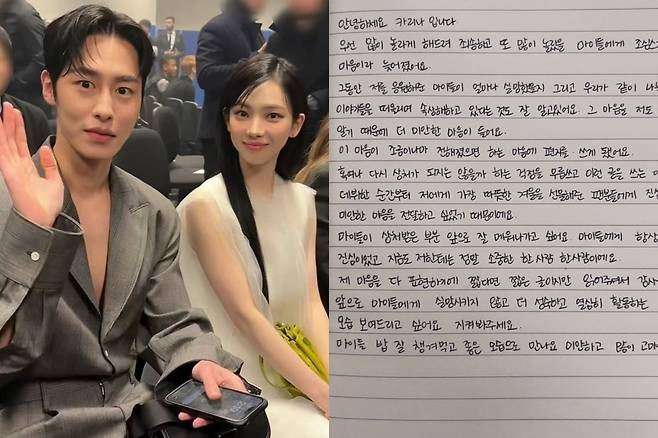 안녕하세요 카리나 입니다
우선 많이 놀라게 해드려 죄송하고 또 많이 놀랐을 마이들에게 조심스
마음이라 늦어졌어요.
그동안 저를 응원해준 마이들이 얼마나 실망했을지 그리고 우리가 같이 나눈
이야기들을 떠올리며 속상해하고 있다는것도 잘 알고있어요. 그 마음을 저도
알기 때문에 더 미안한 마음이 들어요.
이 마음이 조금이나마 전해졌으면 하는 마음에 편지를 쓰게 됐어요.
혹여나 다시 상처가 되지는 않을까 하는 걱정을 무릅쓰고 이런 글을 쓰는
데뷔한 순간부터 저에게 가장 따뜻한 겨울을 선물해준 팬분들에게 진심
미안한 마음을 전달하고 싶었기 때문이에요.
마이들이 상처받은 부분 앞으로 잘 메워나가고 싶어요 마이들에게 항상
진심이었고 지금도 저한테는 정말 소중한 한 사람 한사람이에요.
제 마음을 다 표현하기에 짧다면 짧은 글이지만 읽어주셔서 감사
앞으로 마이들에게 실망시키지 않고 더 성숙하고 열심히 활동하는
모습 보여드리고 싶어요 지켜봐주세요.
마이들 밥 잘 챙겨먹고 좋은 모습으로 만나요 미안하고 많이 고마